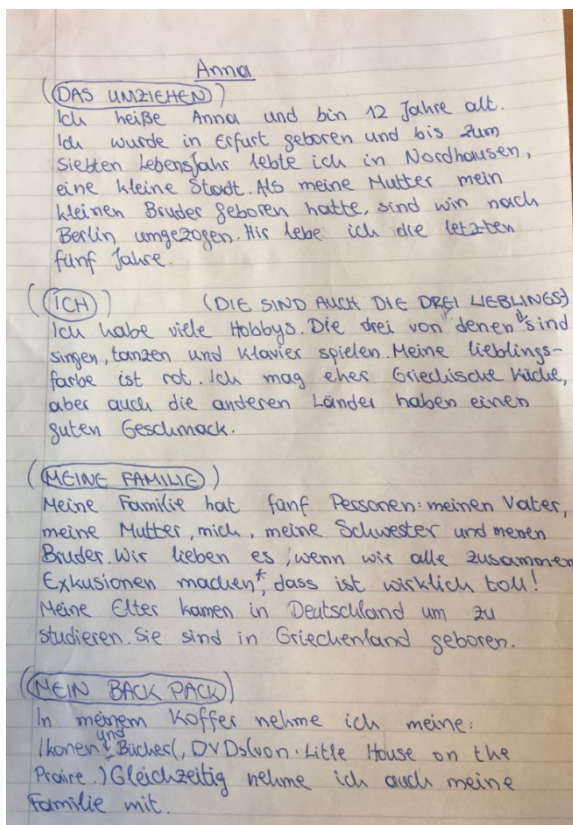 Anna
(DAS UMZIEHEN)
Ich heiße Anna und bin 12 Jahre alt.
Ich wurde in Erfurt geboren und bis zum
siebten Lebensjahr lebte ich in Nordhausen,
eine kleine Stadt. Als meine Mutter mein
kleinen Bruder geboren hatte, sind win nach
Berlin umgezogen. Hir lebe ich die letzten
fünf Jahre.
(ICH) (DIE SIND AUCH DIE DREI LIEBLINGS)
Ich habe viele Hobbys. Die drei von denen sind
singen, tanzen und Klavier spielen. Meine lieblings-
farbe ist rot. Ich mag eher Griechische Küche,
aber auch die anderen Länder haben einen
guten Geschmack.
(MEINE FAMILIE)
Meine Familie hat fünf Personen: meinen Vater,
meine Mutter, mich, meine Schwester und meinen
Bruder. Wir lieben es, wenn wir alle zusammen
Exkusionen machen*, dass ist wirklich toll!
Meine Elter kamen in Deutschland um zu
studieren. Sie sind in Griechenland geboren.
(MEIN BACK PACK)
In meinem Koffer nehme ich meine:
Ikonen und Bücher(, DVDs(von: Little House on the
Praire.) Gleichzeitig nehme ich auch meine
Familie mit.